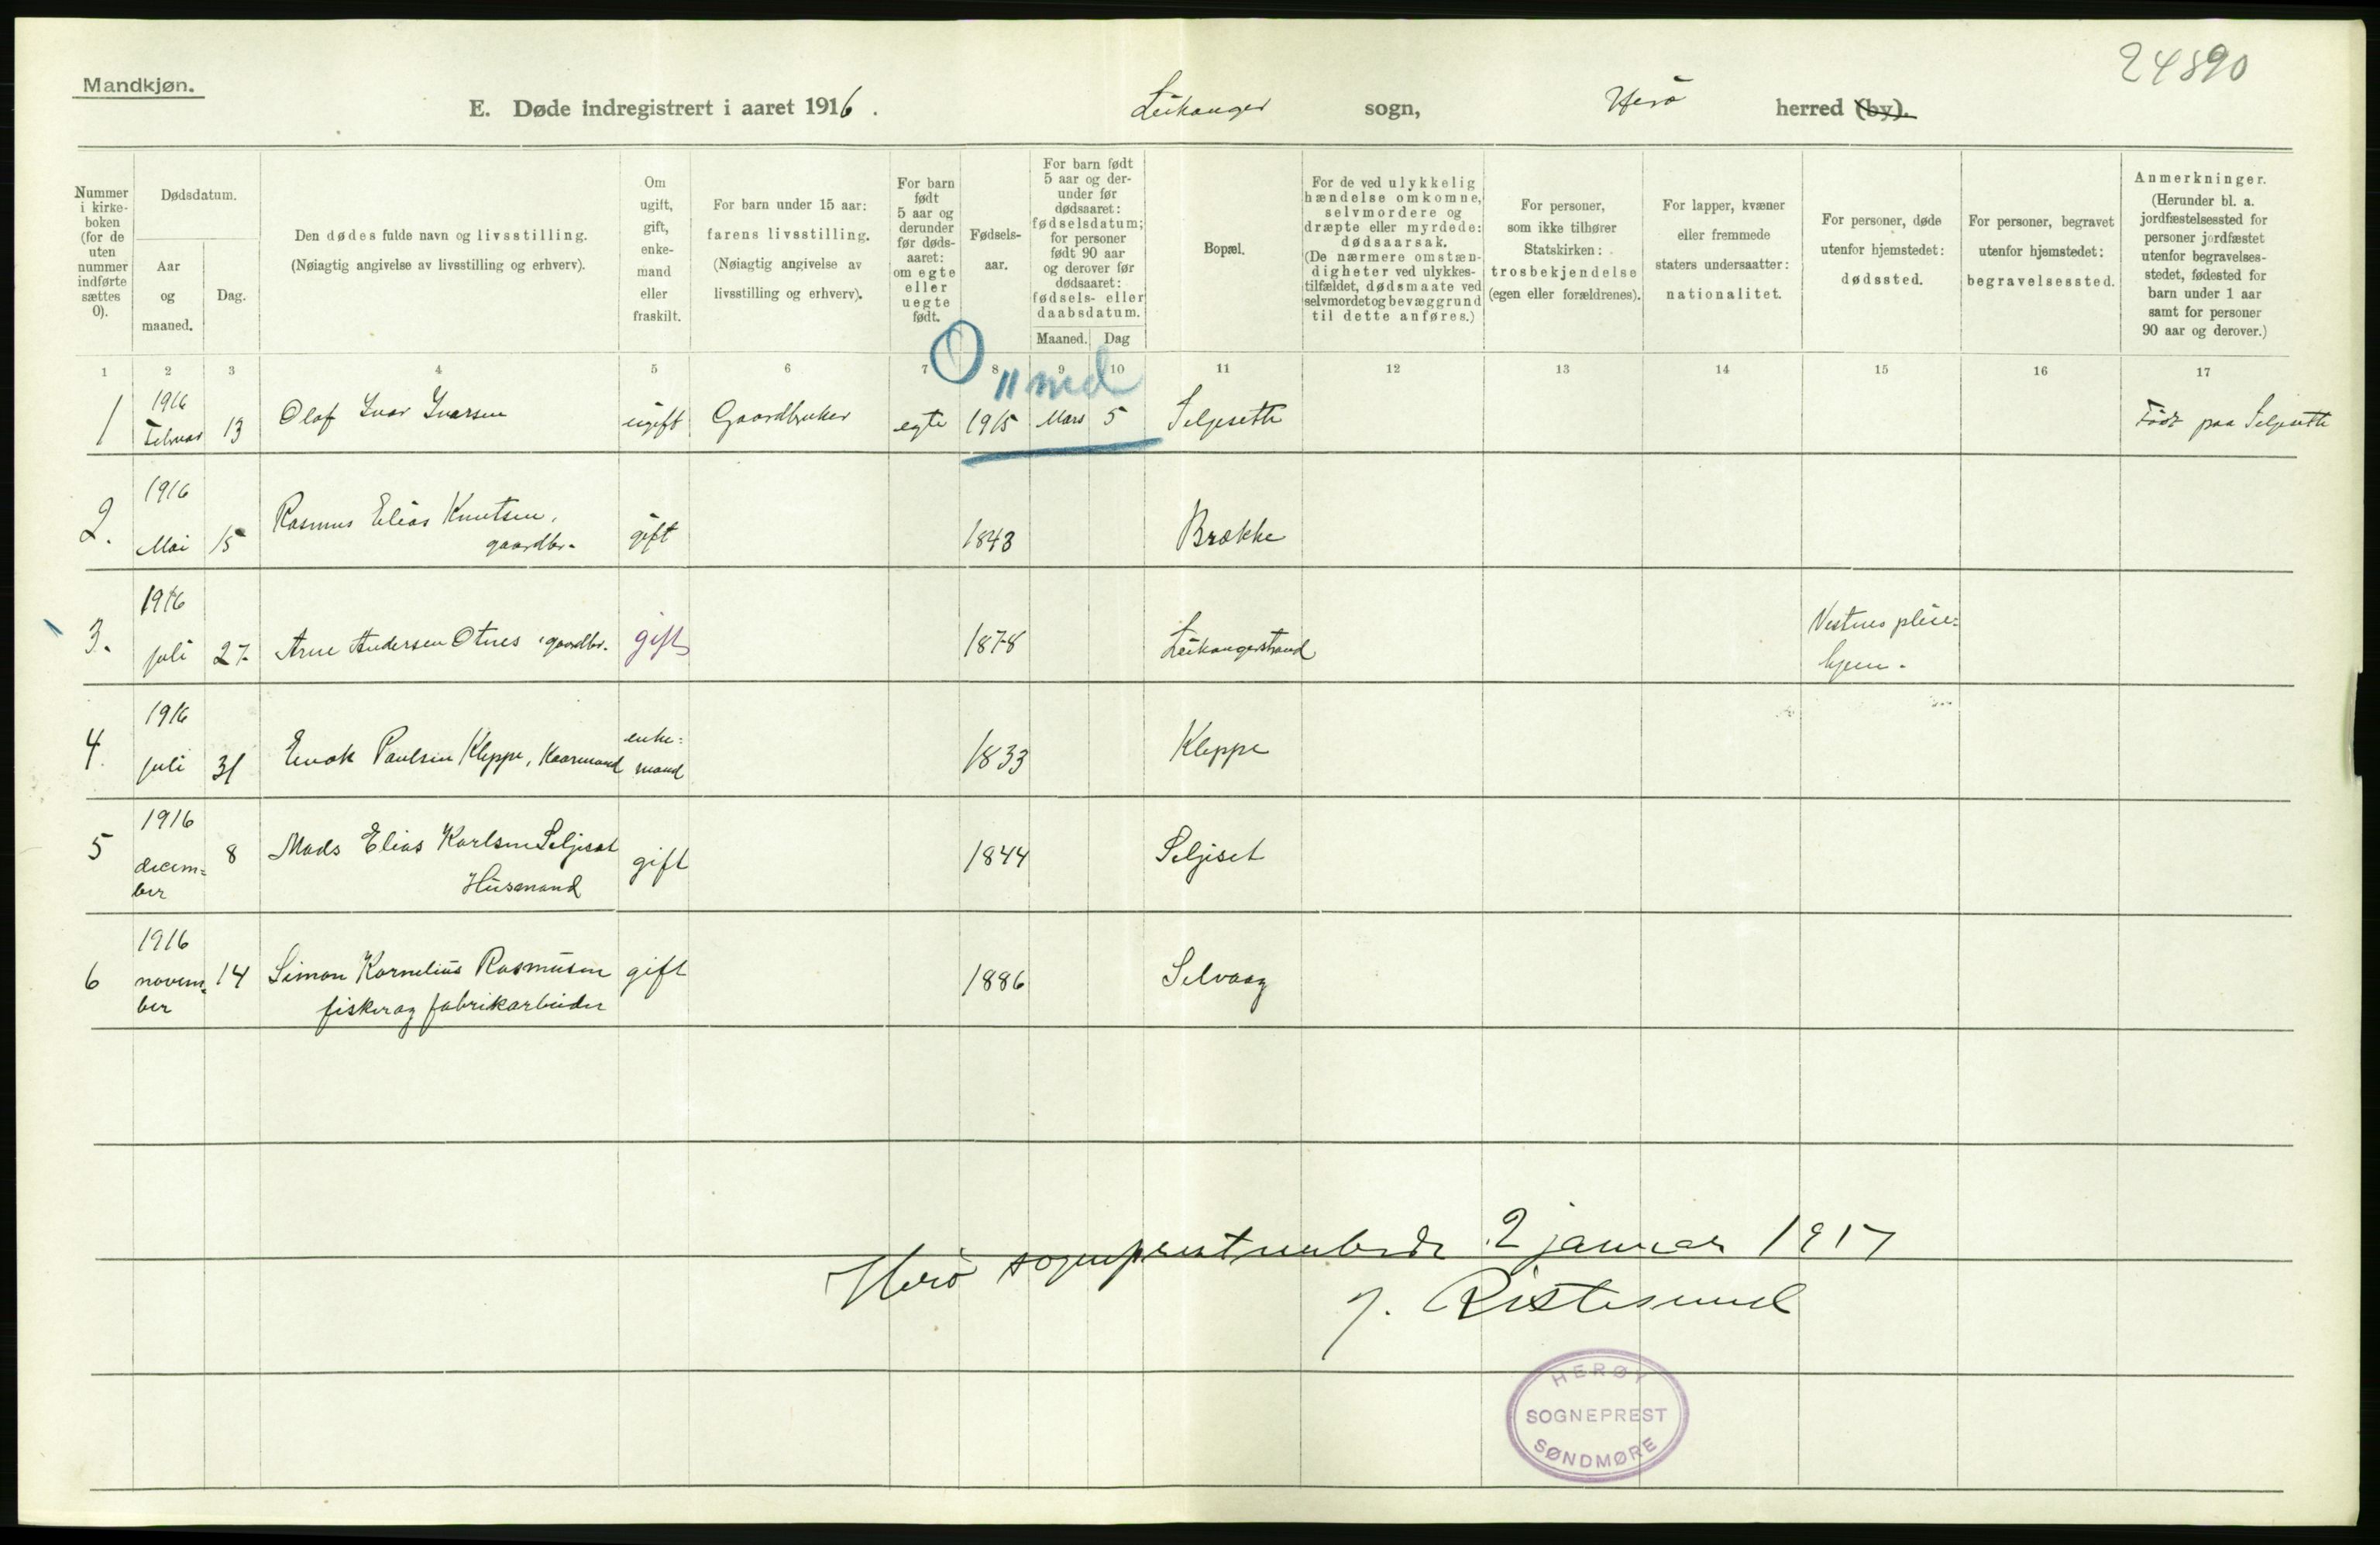 24890
Mandkjøn.
E. Døde indregistrert i aaret 1916. Leikanger sogn, Herö herred (by).
Nummer i kirke-boken (for de uten nummer indførte sættes 0).
Dødsdatum.
Aar og maaned.
Dag.
Den dødes fulde navn og livsstilling.
(Nøiagtig angivelse av livsstilling og erhverv).
Om ugift, gift, enke-mand eller fraskilt.
For barn under 15 aar: farens livsstilling.
(Nøiagtig angivelse av livsstilling og erhverv).
For barn født 5 aar og derunder før døds-aaret: om egte eller uegte født.
Fødsels-aar.
For barn født 5 aar og der-under før dødsaaret: fødselsdatum; for personer født 90 aar og derover før dødsaaret: fødsels- eller daabsdatum.
Maaned. Dag
Bopæl.
For de ved ulykkelig hændelse omkomne, selvmordere og dræpte eller myrdede: dødsaarsak.
(De nærmere omstæn-digheter ved ulykkes-tilfældet, dødsmaate ved selvmordet og bevæggrund til dette anføres.)
For personer, som ikke tilhører Statskirken: trosbekjendelse (egen eller forældrenes).
For lapper, kvæner eller fremmede staters undersaatter: nationalitet.
For personer, døde utenfor hjemstedet: dødssted.
For personer, begravet utenfor hjemstedet: begravelsessted.
Anmerkninger.
(Herunder bl. a. jordfæstelsessted for personer jordfæstet utenfor begravelses-stedet, fødested for barn under 1 aar samt for personer 90 aar og derover.)
1 2 3 4 5 6 7 8 9 10 11 12 13 14 15 16 17
0 11 md
1 1916 Februar 13 Olaf Ivar Ivarsen ugift Gaardbruker egte 1915 Mars 5 Seljesette Född paa Seljesette
2. 1916 Mai 15 Rasmus Elias Knutsen, gaardbr. gift 1843 Brække
3. 1916 juli 27. Arne Andersen Otnes gaardbr. gift 1878 Leikangerstrand Vestnes pleie=
hjem.
4. 1916 juli 31 Enok Paulsen Kleppe, Kaarmand enke=
mand 1833 Kleppe
5 1916 decem=
ber 8 Mads Elias Karlsen Seljeset
Husmand gift 1844 Seljeset
6 1916 novem=
ber 14 Simon Kornelius Rasmusen
fisker og fabrikarbeider gift 1886 Selvaag
Herö sogneprestembede 2 januar 1917
J. Ristesund
HERØY
SOGNEPREST
SØNDMØRE